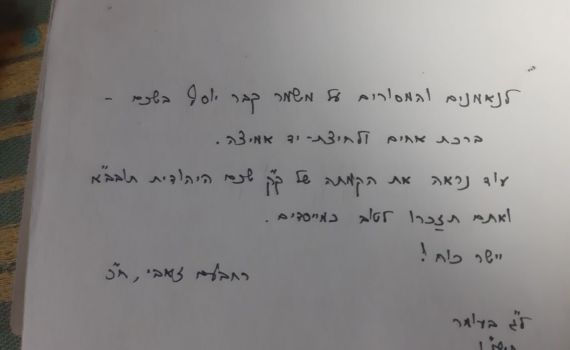 לנאמנים והמסורים על משמר קבר יוסף בשכם -
ברכת אחים ולחיצת-יד אמיצה.
עוד נראה את הקמתה של ק"ק שכם היהודית תובב"א
ואתם תזכרו לטוב כמייסדים.
יישר כוח!
רחבעם זאבי, ח"כ
ל"ג בעומר